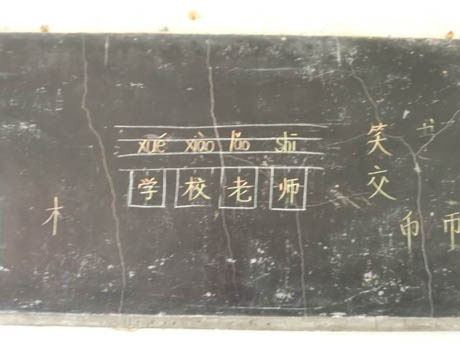 xué xiào lǎo shī
学校老师
笑
交
木
币
币